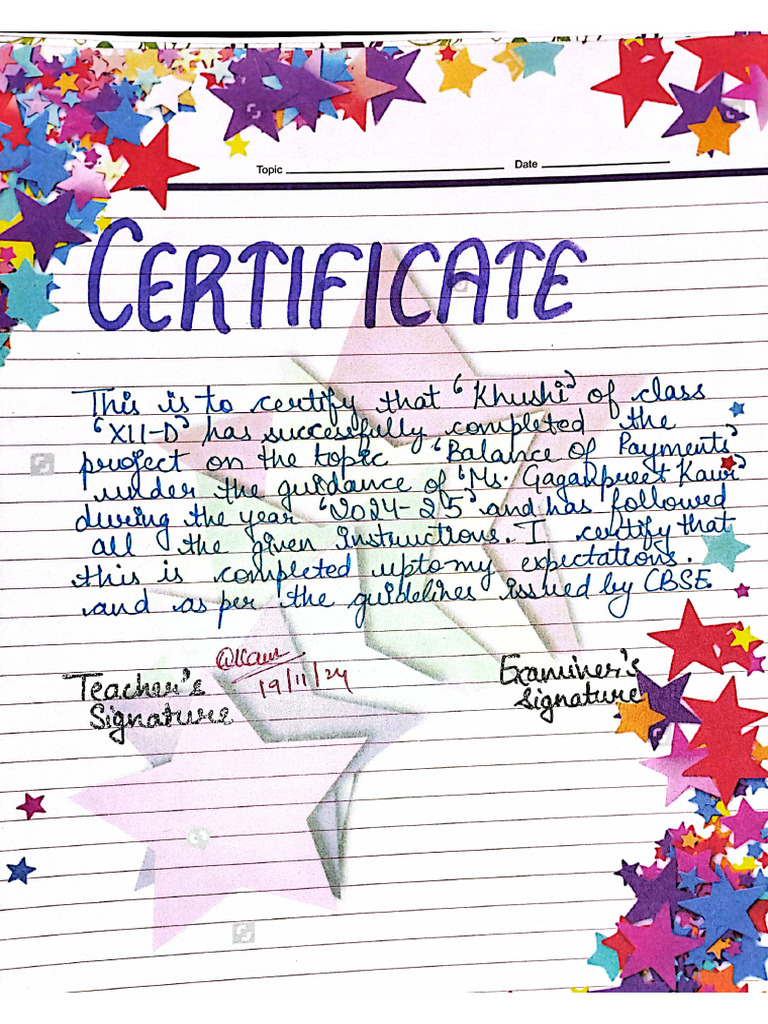 Topic Date
CERTIFICATE
This is to certify that 'Khushi' of class
'XII-D' has successfully completed the
project on the topic 'Balance of Payments'
under the guidance of 'Ms. Gaganpreet Kaur'
during the year '2024-25' and has followed
all the given instructions. I certify that
this is completed upto my expectations.
and as per the guidelines issued by CBSE.
Teacher's
Signature
19/11/24
Examiner's
Signature